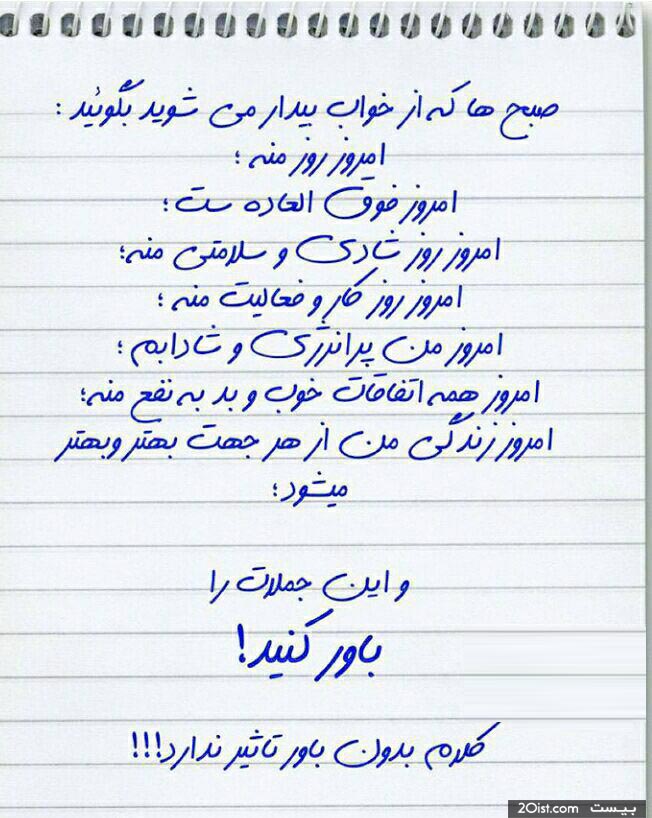 صبح ها که از خواب بیدار می شوید بگوئید :
امروز روز منه ؛
امروز فوق العاده ست ؛
امروز روز شادی و سلامتی منه؛
امروز روز کار و فعالیت منه ؛
امروز من پرانرژی و شادابم ؛
امروز همه اتفاقات خوب و بد به نفع منه؛
امروز زندگی من از هر جهت بهتر وبهتر
میشود؛
و این جملات را
باور کنید!
کلام بدون باور تاثیر ندارد!!!
2Oist.com بیست